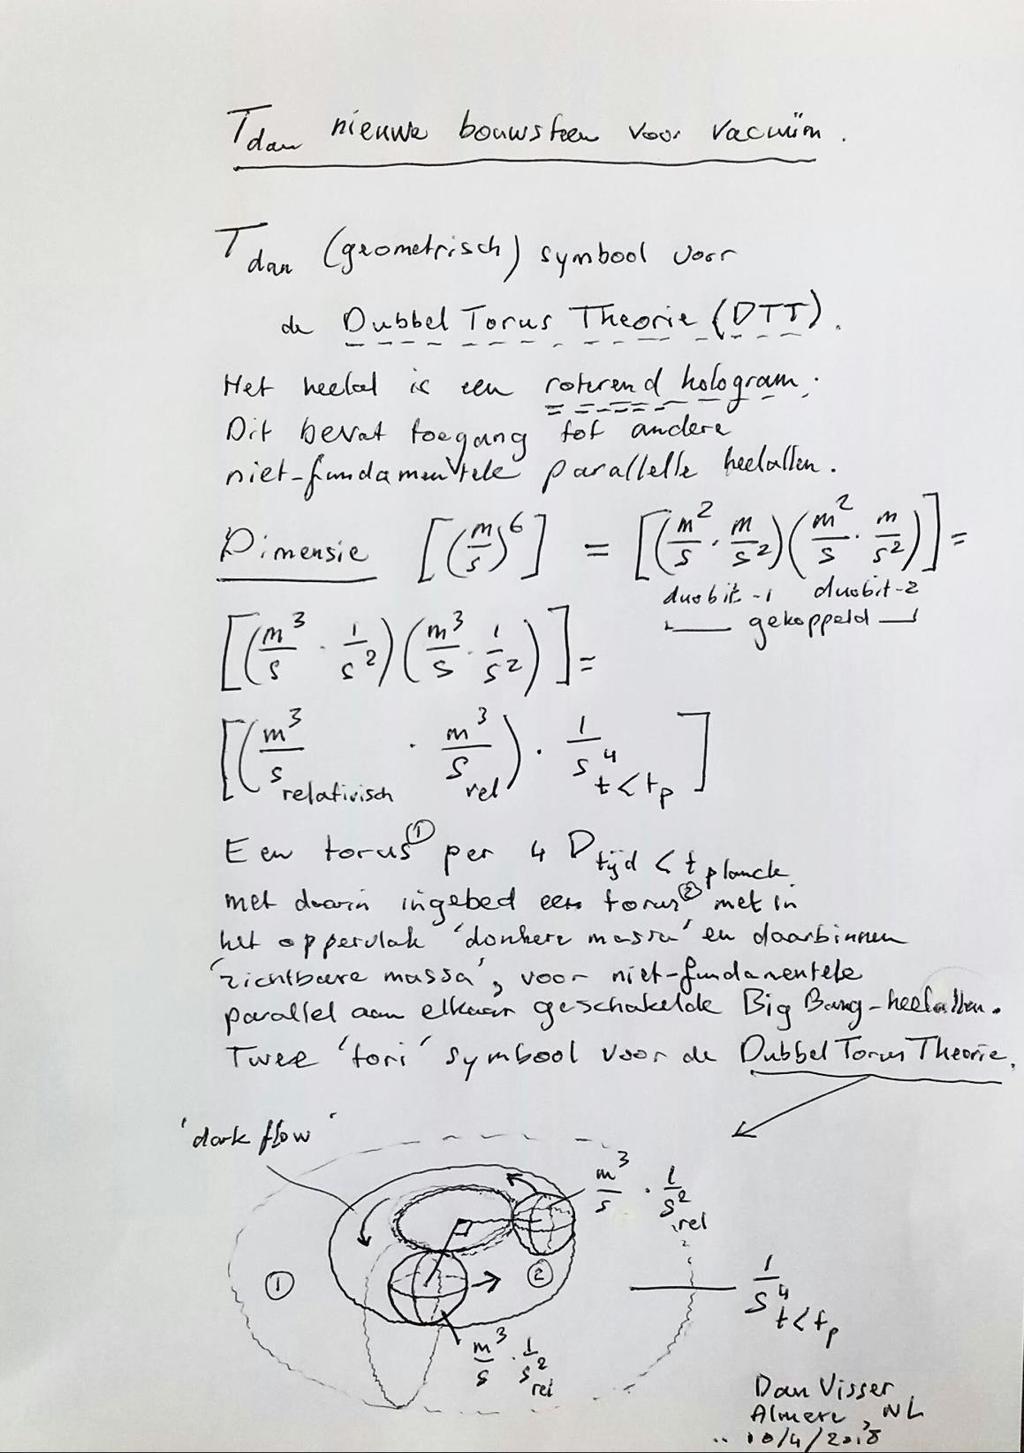 Tdan nieuwe bouwsteen voor vacuüm.
Tdan (geometrisch) symbool voor
de Dubbel Torus Theorie (DTT).
Het heelal is een roterend hologram.
Dit bevat toegang tot andere
niet-fundamentele parallelle heelallen.
Dimensie [(m/s)^6] = [(m²/s · m/s²)(m²/s · m/s²)] =
duobit-1 duobit-2
gekoppeld
[(m³/s · 1/s²)(m³/s · 1/s²)] =
[(m³/s relativisch · m³/s rel) · 1/s⁴ t<tp]
Een torus① per 4 D tijd < t planck
met daarin ingebed een torus② met in
het oppervlak 'donkere massa' en daarbinnen
'zichtbare massa', voor niet-fundamentele
parallel aan elkaar geschakelde Big Bang-heelallen.
Twee 'tori' symbool voor de Dubbel Torus Theorie.
'dark flow'
m³/s · 1/s² rel
① ②
1/s⁴ t<tp
m³/s · 1/s² rel
Dan Visser
Almere, NL
10/4/2018